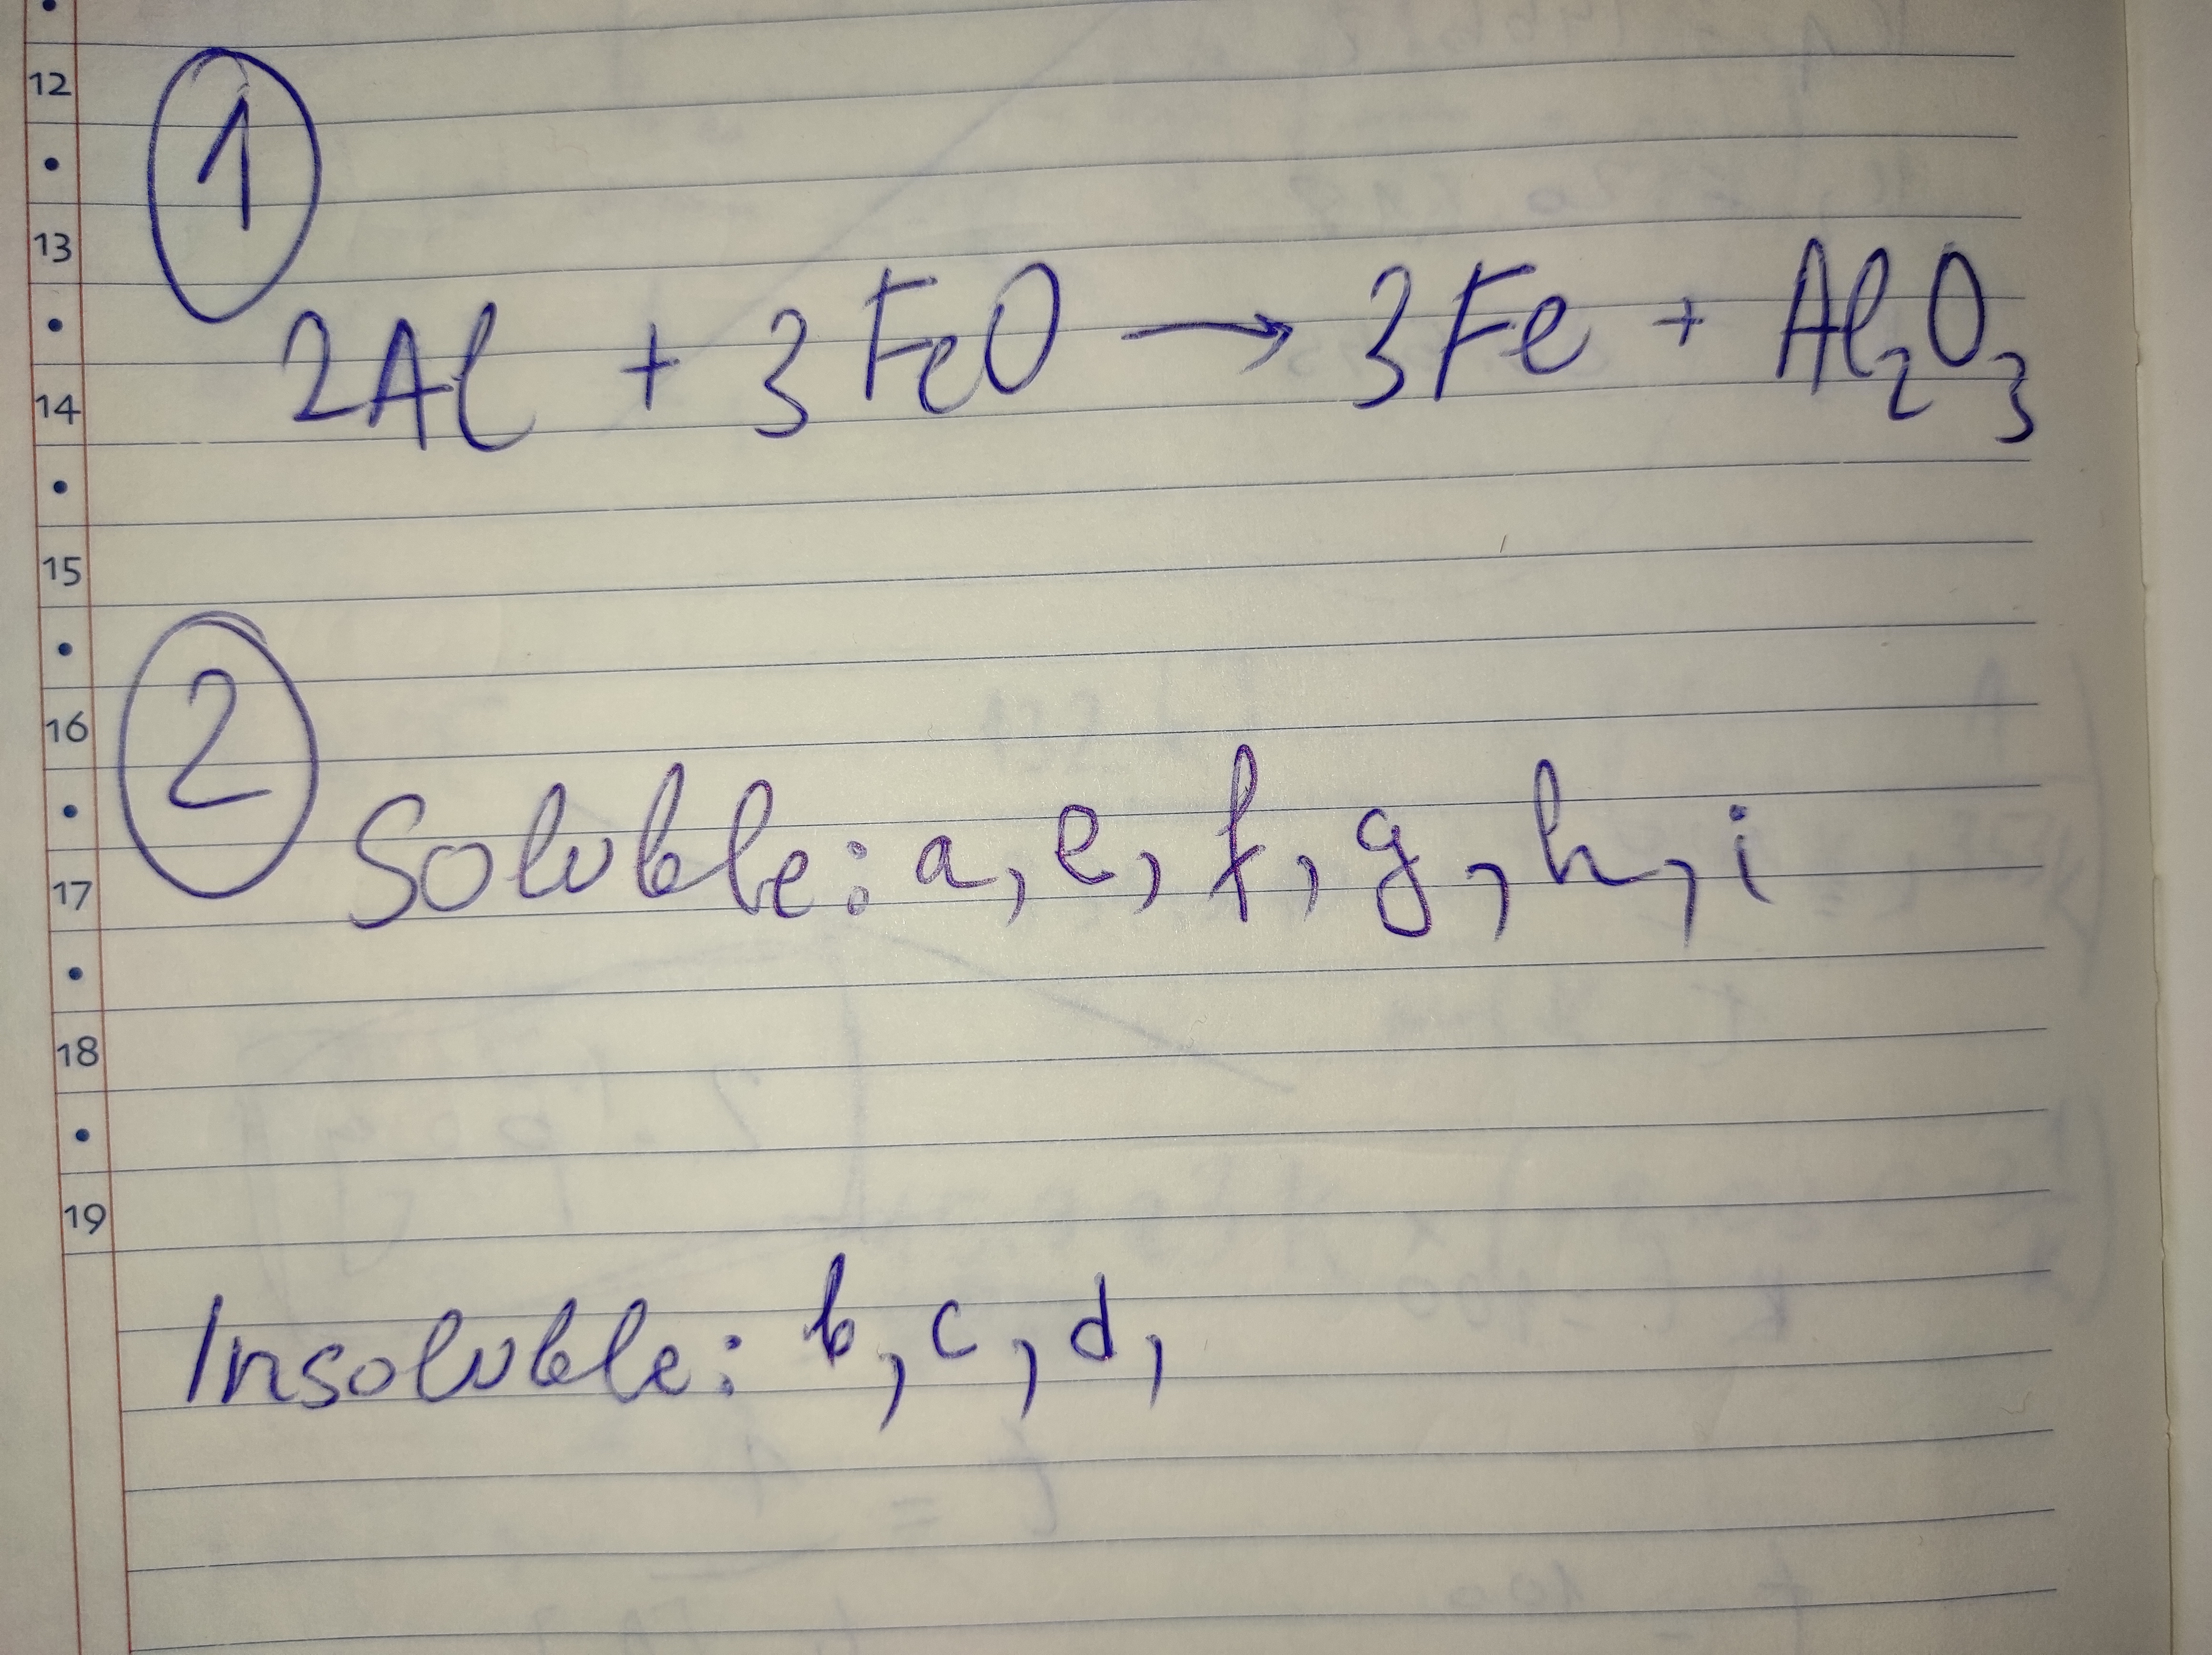 12
①
13
2Al + 3FeO → 3Fe + Al₂O₃
14
15
②
16
Soluble: a, e, f, g, h, i
17
18
19
Insoluble: b, c, d,